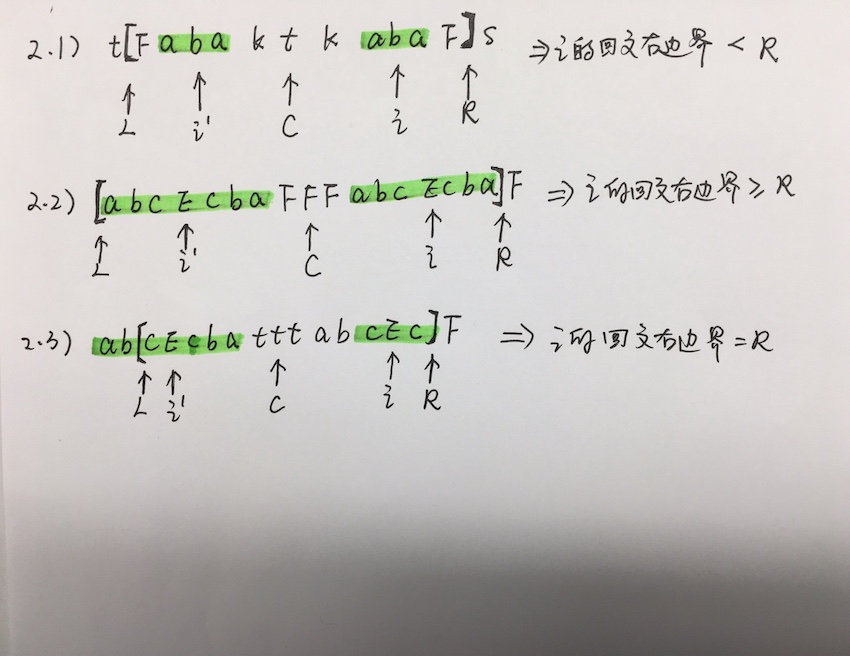 2.1) t[F a b a k t k a b a F]s ⇒ i的回文右边界 < R
↑ ↑ ↑ ↑ ↑
L i' C i R
2.2) [a b c E c b a F F F a b c E c b a]F ⇒ i的回文右边界 ≥ R
↑ ↑ ↑ ↑ ↑
L i' C i R
2.3) a b[c E c b a t t t a b c E c]F ⇒ i的回文右边界 = R
↑ ↑ ↑ ↑ ↑
L i' C i R